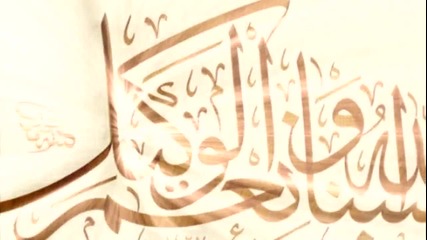 سبنا لله ونعم الوكيل